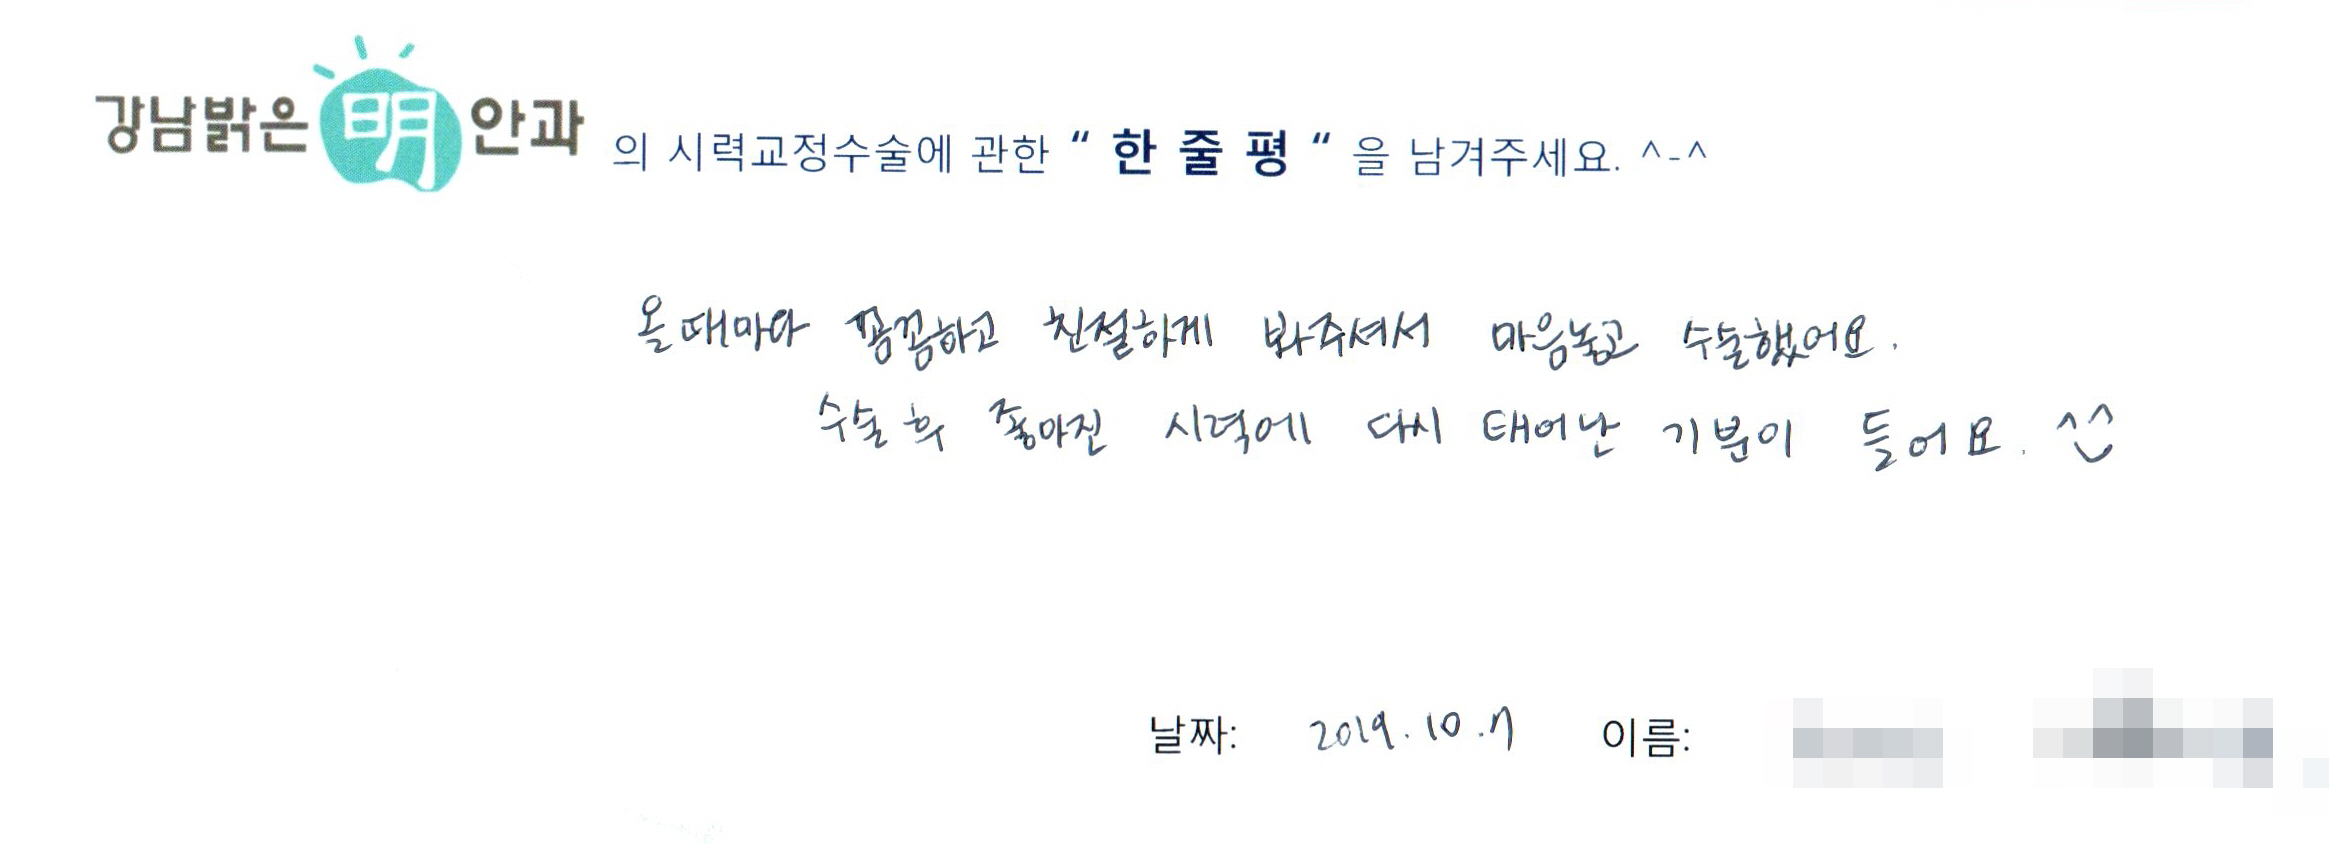 강남밝은明안과 의 시력교정수술에 관한 “ 한 줄 평 “ 을 남겨주세요. ^-^
올때마다 꼼꼼하고 친절하게 봐주셔서 마음놓고 수술했어요.
수술 후 좋아진 시력에 다시 태어난 기분이 들어요. ^^
날짜: 2019. 10. 7 이름: